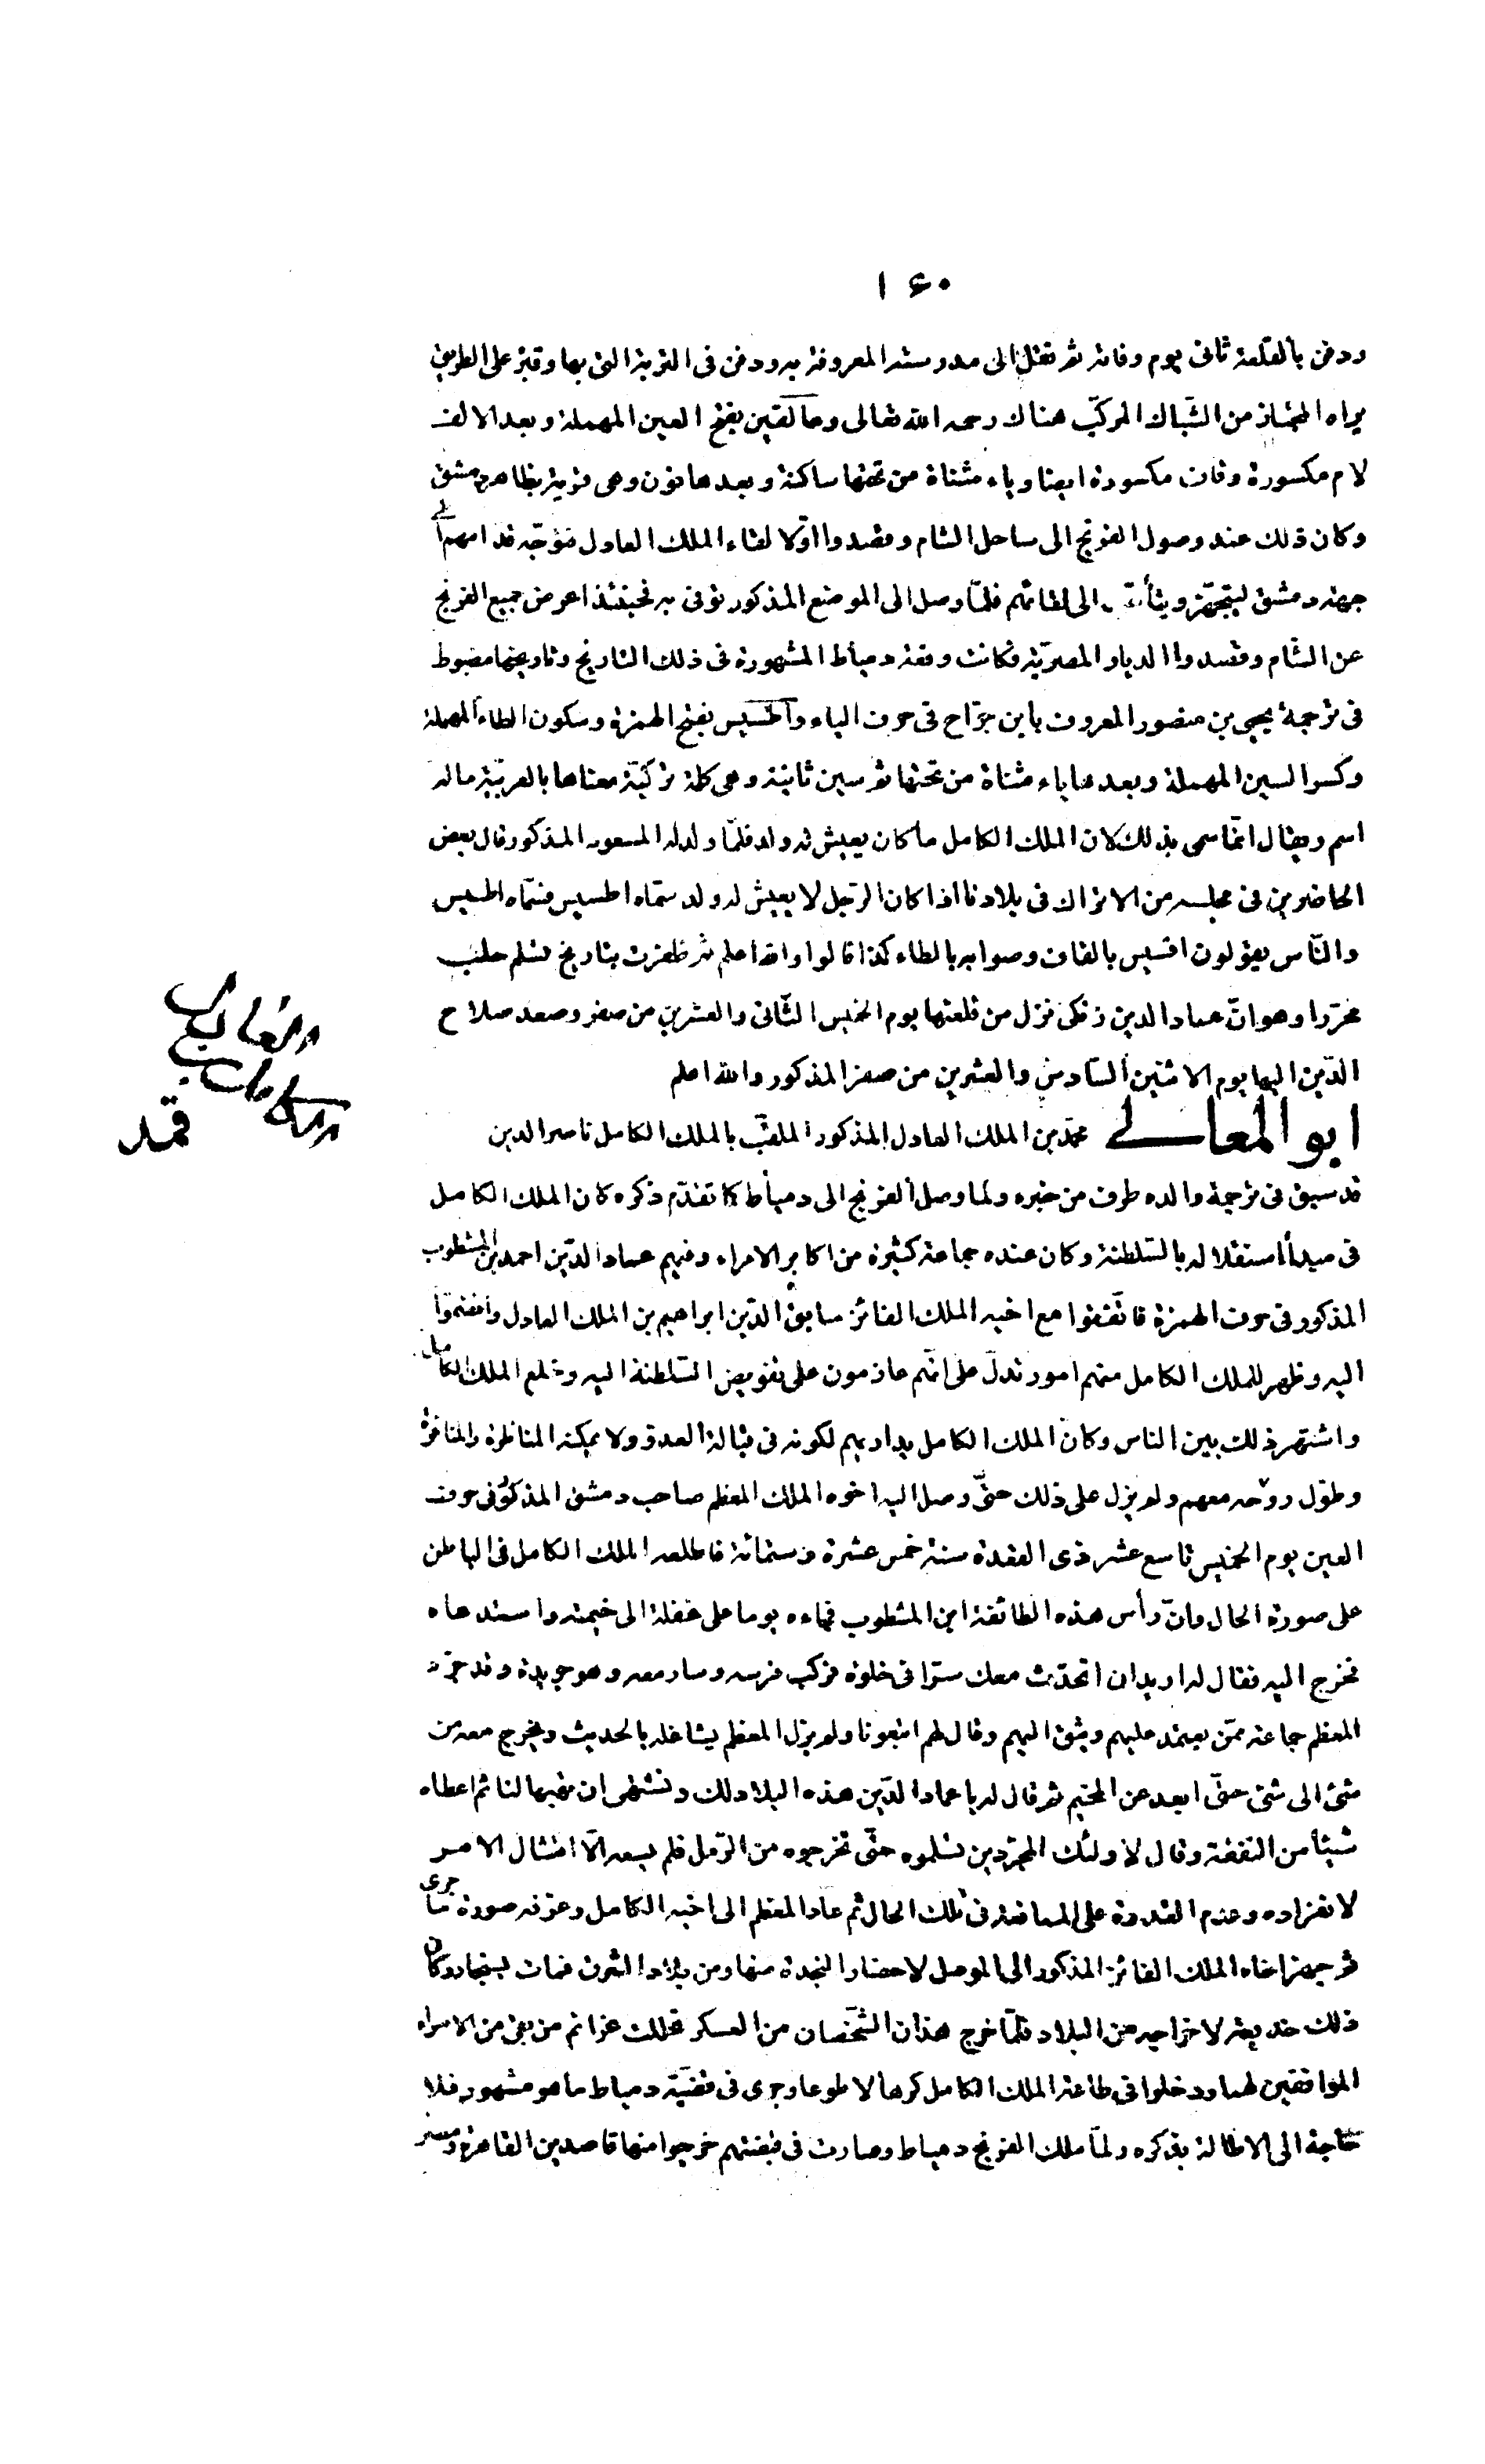 ۱۶۰
ودفن بالقلعة ثانى يوم وفاته ثم نقل الى مدرسته المعروفة به ودفن فى التربة التى بها وقبره على الطريق
يراه المجتاز من الشّباك المركّب هناك رحمه الله تعالى وعالقين بفتح العين المهملة وبعد الالف
لام مكسورة وقاف مكسورة ايضا وياء مثناة من تحتها ساكنة وبعدها نون وهى قرية بظاهر دمشق
وكان ذلك عند وصول الفرنج الى ساحل الشام وقصدوا اوّلا لقاء الملك العادل فتوجّه قدامهم الى
جهة دمشق ليتجهّز ويتأهّب الى لقائهم فلمّا وصل الى الموضع المذكور توفى به فحينئذ اعرض جميع الفرنج
عن الشّام وقصدوا الديار المصريّة فكانت وقعة دمياط المشهورة فى ذلك التاريخ وتاريخها مضبوط
فى ترجمة يحيى بن منصور المعروف بابن جرّاح فى حرف الياء واطسيس بفتح الهمزة وسكون الطاء المهملة
وكسر السين المهملة وبعدها ياء مثناة من تحتها ثم سين ثانية وهى كلمة تركيّة معناها بالعربيّة ماله
اسم ويقال انّما سمى بذلك لان الملك الكامل ماكان يعيش له ولد فلمّا ولد له المسعود المذكور قال بعض
الحاضرين فى مجلسه من الاتراك فى بلادنا اذا كان الرّجل لا يعيش له ولد سمّاه اطسيس فسمّاه اطسيس
والنّاس يقولون اقسيس بالقاف وصوابه بالطاء كذا قالوا والله اعلم ثم ظفرت بتاريخ تسلم حلب
محرّرا وهو انّ عماد الدين زنكى نزل من قلعتها يوم الخميس الثّانى والعشرين من صفر وصعد صلاح
الدّين اليها يوم الاثنين السّادس والعشرين من صفر المذكور والله اعلم
ابو المعالى محمّد بن الملك العادل المذكور الملقّب بالملك الكامل ناصر الدين
قد سبق فى ترجمة والده طرف من خبره ولما وصل الفرنج الى دمياط كا تقدّم ذكره كان الملك الكامل
فى مبدأ استقلاله بالسّلطنة وكان عنده جماعة كثيرة من اكابر الامراء وفيهم عماد الدّين احمد بن المشطوب
المذكور فى حرف الهمزة فاتّفقوا مع اخيه الملك الفائز سابق الدّين ابراهيم بن الملك العادل وانضمّوا
اليه وظهر للملك الكامل منهم امور تدلّ على انّهم عازمون على تفويض السّلطنة اليه وخلع الملك الكامل
واشتهر ذلك بين الناس وكان الملك الكامل يداريهم لكونه فى قبالة العدو ولا يمكنه المناظرة والمنافرة
وطوّل روحه معهم ولم يزل على ذلك حتّى وصل اليه اخوه الملك المعظم صاحب دمشق المذكور فى حرف
العين يوم الخميس تاسع عشر ذى القعدة سنة خمس عشرة وستمائة فاطلعه الملك الكامل فى الباطن
على صورة الحال وانّ رأس هذه الطائفة ابن المشطوب فجاءه يوما على غفلة الى خيمته واستدعاه
فخرج اليه فقال له اريد ان اتحدّث معك سرّا فى خلوة فركب فرسه وسار معه وهو جريدة وقد جرّد
المعظم جماعة ممّن يعتمد عليهم ويثق اليهم وقال لهم اتبعونا ولم يزل المعظم يشاغله بالحديث ويخرج معه من
شئ الى شئ حتّى ابعد عن المخيم ثم قال له يا عماد الدّين هذه البلاد لك ونشتهى ان تهبها لنا ثم اعطاه
شيئا من النّفقة وقال لاولئك المجرّدين تسلموه حتّى تخرجوه من الرّمل فلم يسعه الّا امتثال الامر
لانفراده وعدم القدرة على الممانعة فى تلك الحال ثم عاد المعظم الى اخيه الكامل وعرّفه صورة ما جرى
ثم جهز اخاه الملك الفائز المذكور الى الموصل لاحضار النجدة منها ومن بلاد الشرق فمات بسنجار وكان
ذلك خديعة لاخراجه من البلاد فلمّا خرج هذان الشّخصان من العسكر تحللت عزائم من بقى من الامراء
الموافقين لهما ودخلوا فى طاعة الملك الكامل كرها لا طوعا وجرى فى قضيّة دمياط ما هو مشهور فلا
حاجة الى الاطالة بذكره ولمّا ملك الفرنج دمياط وصارت فى قبضتهم خرجوا منها قاصدين القاهرة ومصر